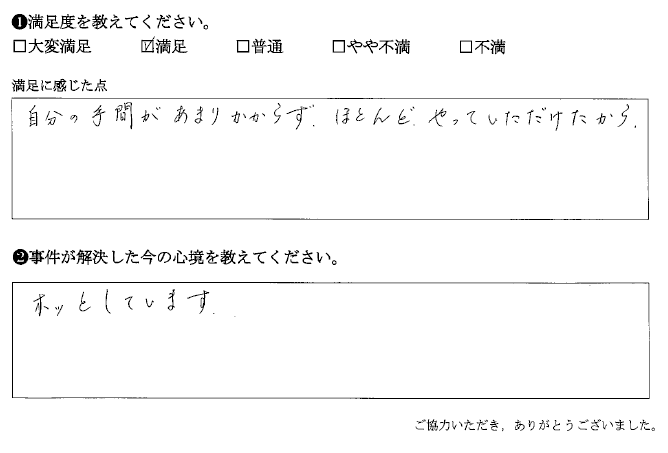 ❶満足度を教えてください。
□大変満足 ☑満足 □普通 □やや不満 □不満
満足に感じた点
自分の手間があまりかからず、ほとんど、やっていただけたから。
❷事件が解決した今の心境を教えてください。
ホッとしています。
ご協力いただき、ありがとうございました。